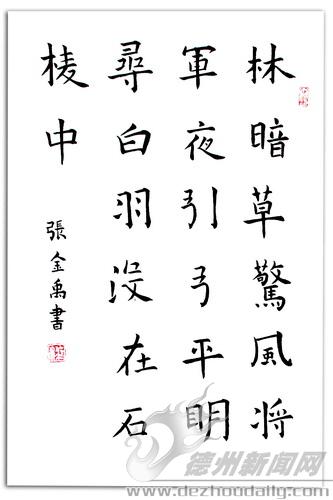 林暗草驚風將
軍夜引弓平明
尋白羽没在石
棱中
張金禹書
德州新闻网
www.dezhoudaily.com